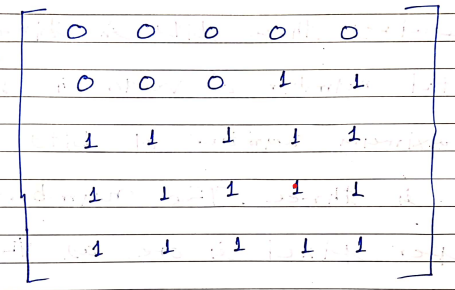 0 0 0 0 0
0 0 0 1 1
1 1 1 1 1
1 1 1 1 1
1 1 1 1 1